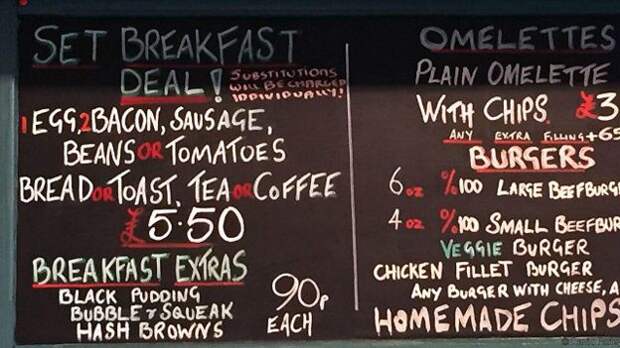 SET BREAKFAST
DEAL!
SUBSTITUTIONS
WILL BE CHARGED
INDIVIDUALLY!
1 EGG, 2 BACON, SAUSAGE,
BEANS OR TOMATOES
BREAD OR TOAST, TEA OR COFFEE
£5.50
BREAKFAST EXTRAS
BLACK PUDDING
BUBBLE & SQUEAK
HASH BROWNS
90p
EACH
OMELETTES
PLAIN OMELETTE
WITH CHIPS £3
ANY EXTRA FILLING +65
BURGERS
6 oz %100 LARGE BEEFBURG
4 oz %100 SMALL BEEFBUR
VEGGIE BURGER
CHICKEN FILLET BURGER
ANY BURGER WITH CHEESE, A
HOMEMADE CHIPS